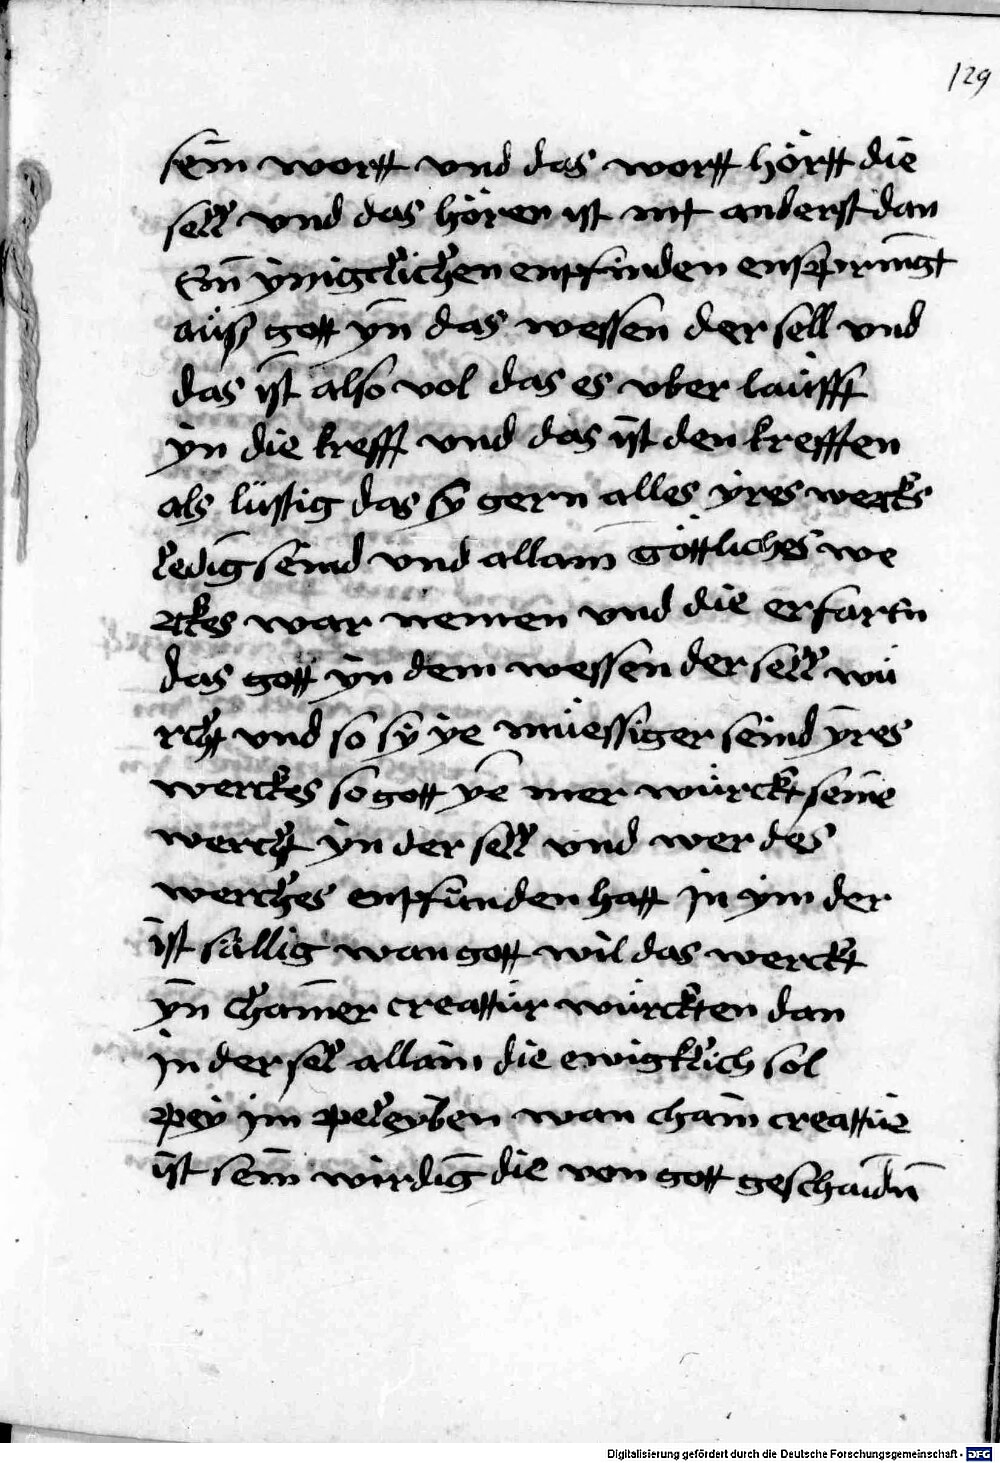 129
sein wortt vnd das wortt hörtt die
sell vnd das hören ist nit anderst dan
Ein ynigclichen enpfinden enspringt
auß gott yn das wessen der sell vnd
das ist also vol das es vber laüfft
yn die krefft vnd das ist den krefften
als lüstig das sy gern alles yres wercks
ledig seind vnd allain göttliches we
rckes war nemen vnd die erfarn
das gott yn dem wessen der sell wü
rcht vnd so sy ye müessiger seind yres
werckes so gott ye mer würckt seine
werch yn der sell vnd wer des
werches enpfunden hatt Jn ym der
ist sällig wan gott wil das werckt
yn chainer creattür würckten dan
Jn der sel allain die ewigklich sol
pey Jm peleyben wan chain creattür
ist sein wirdig die von gott geschaidn
Digitalisierung gefördert durch die Deutsche Forschungsgemeinschaft - DFG